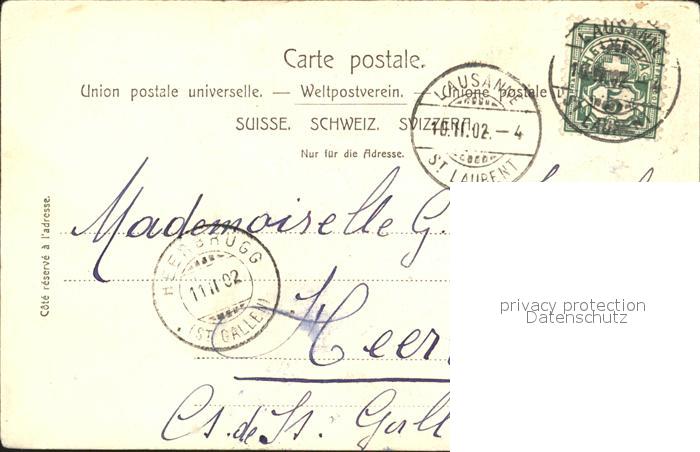 Carte postale.
Union postale universelle. — Weltpostverein. — Unione postale
SUISSE. SCHWEIZ. SVIZZERA.
Nur für die Adresse.
Côté réservé à l'adresse.
LAUSANNE
10.II.02.–4
ST LAURENT
LAUSANNE
10.II.02. 4
ST LAURENT
Mademoiselle G.
HEERBRUGG
11.II.02.
(ST. GALLEN)
Heer
Ct. de St. Gall
privacy protection
Datenschutz